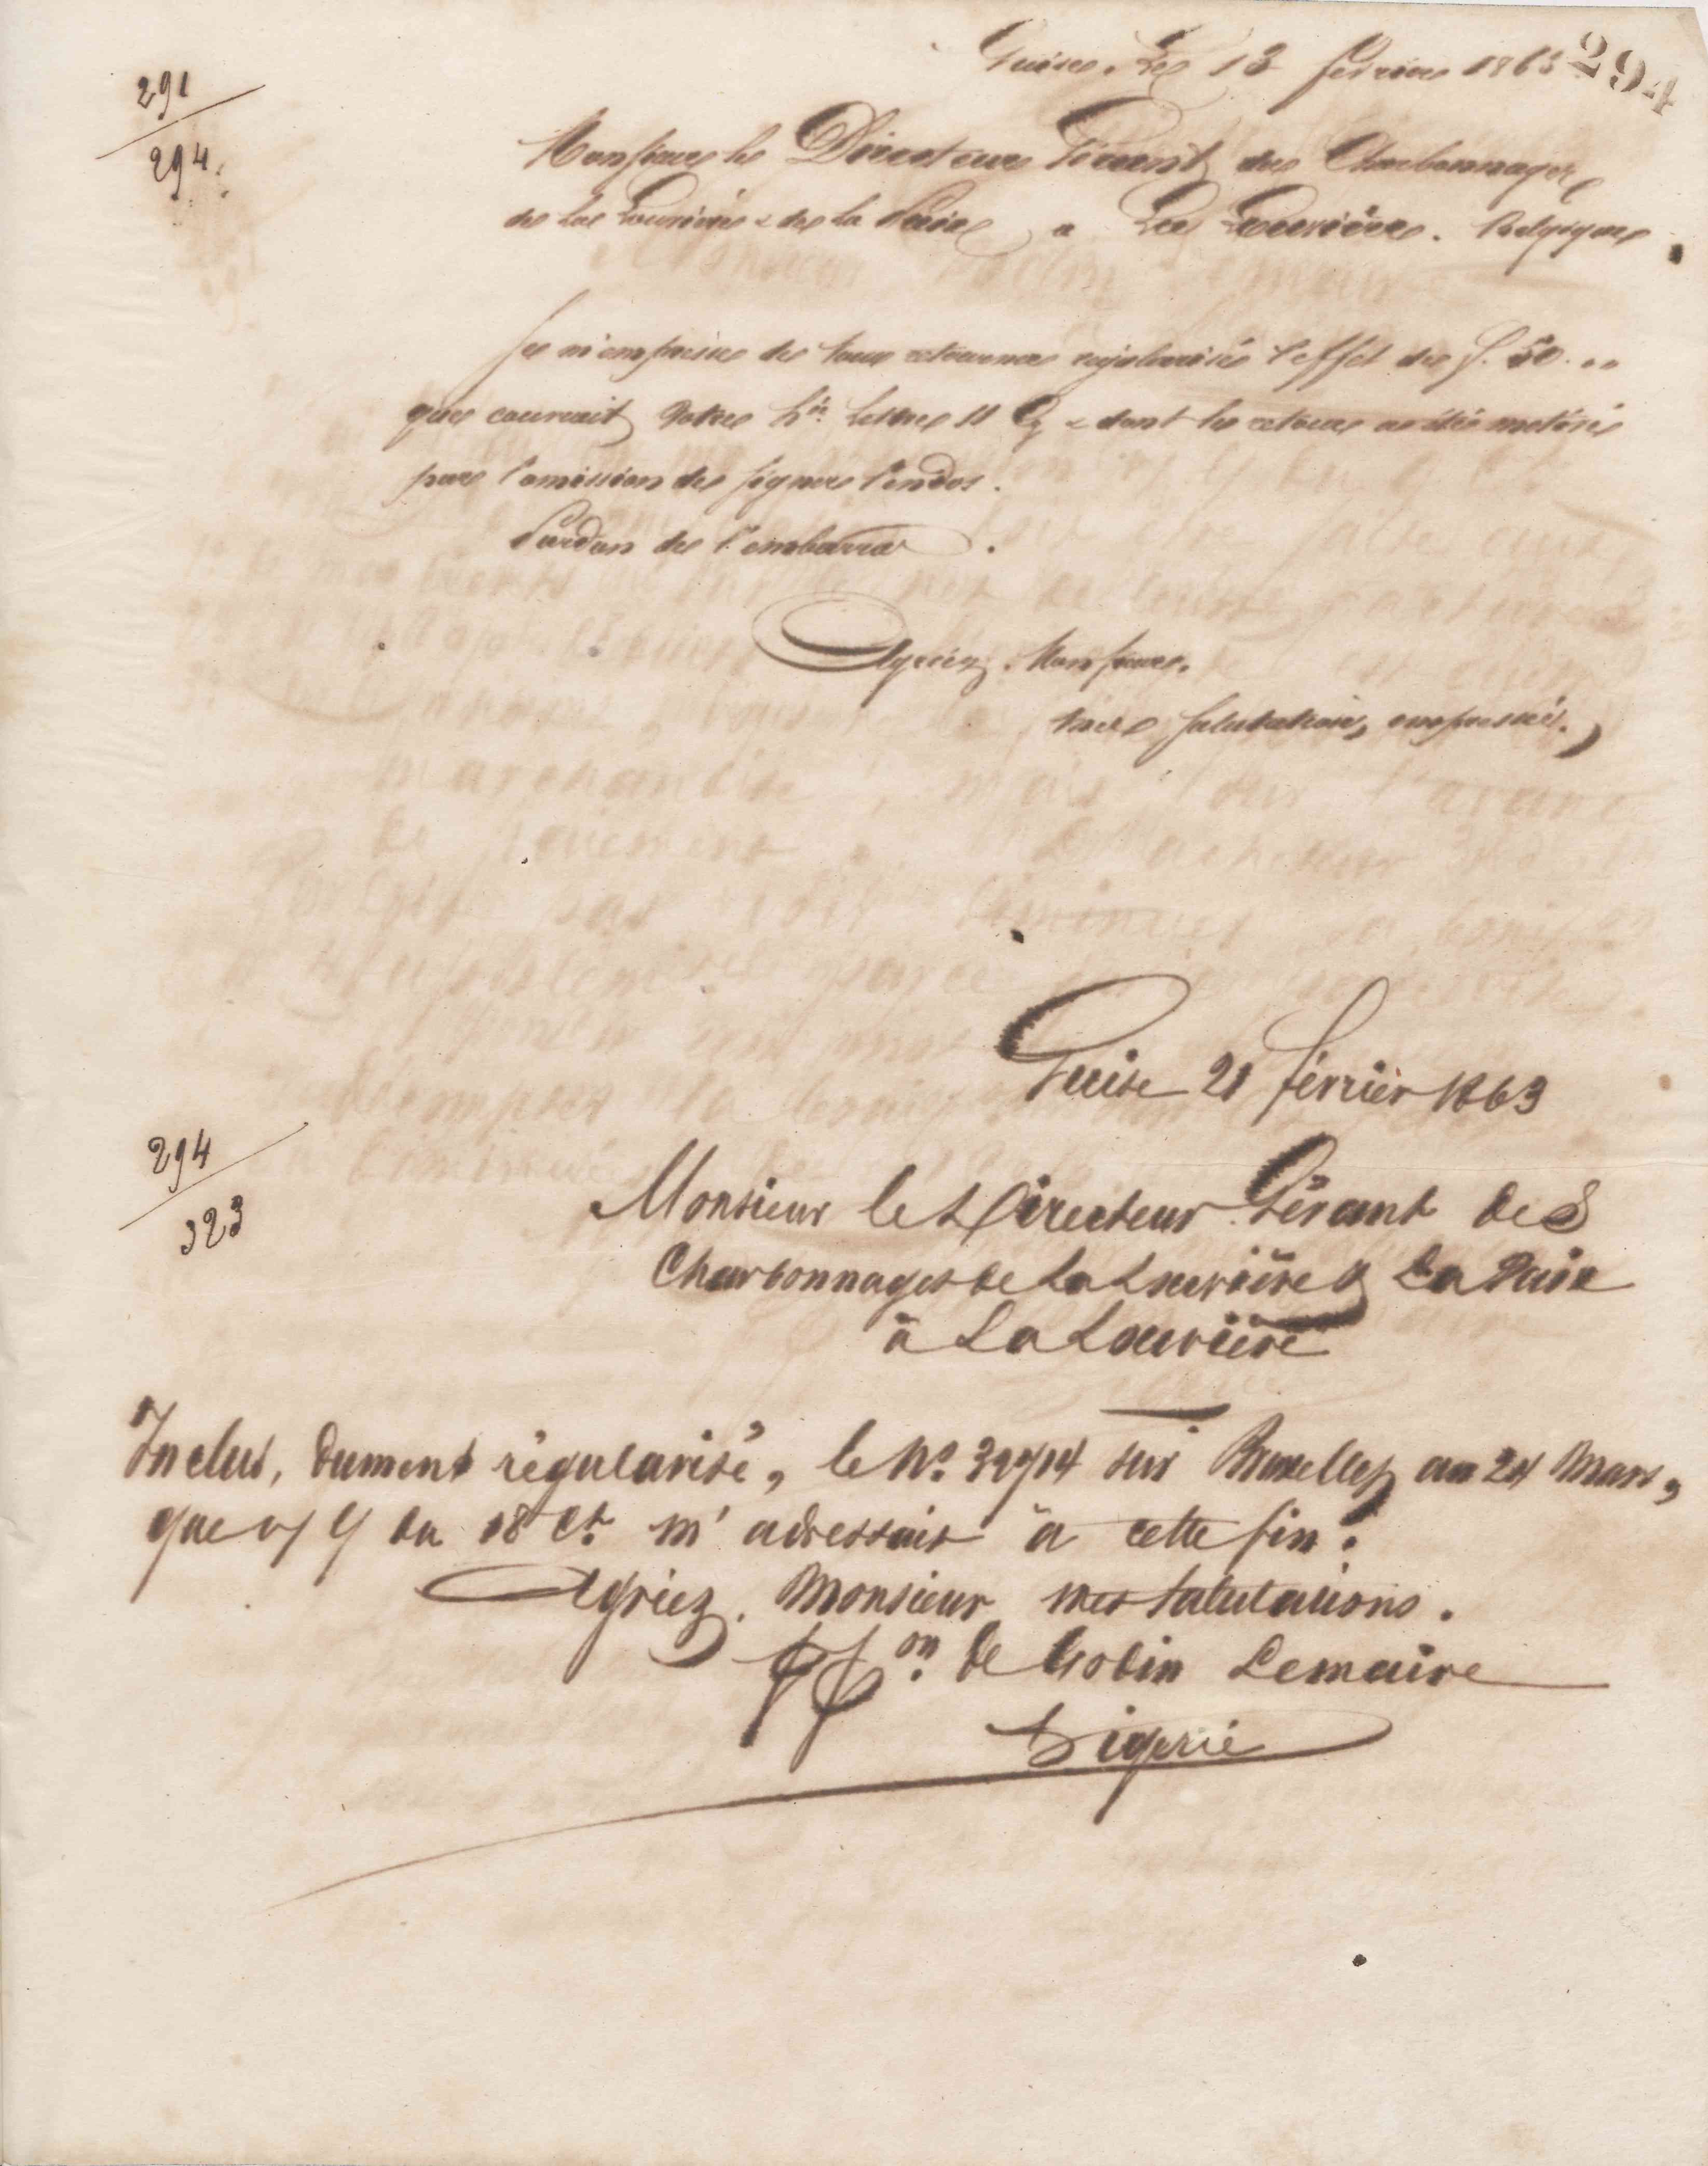 294
291
294
Guise, Le 13 février 1863
Monsieur le Directeur Gérant des Charbonnages
de La Louvière & de la Paix à La Louvière. Belgique
Je m'empresse de vous retourner régularisé l'effet de f. 50 ..
que couvrait votre lettre 11 & dont le retour a été motivé
par l'omission de signer l'endos.
Pardon de l'embarras.
Agréez, Monsieur,
mes salutations empressées.
Guise 21 février 1863
294
323
Monsieur le Directeur Gérant des
Charbonnages de La Louvière & La Paix
à La Louvière
Inclus, dument régularisé, le No. sur Bruxelles au 24 Mars,
que du 18 Ct. m'adressait à cette fin.
Agriez, Monsieur mes salutations.
de Godin Lemaire